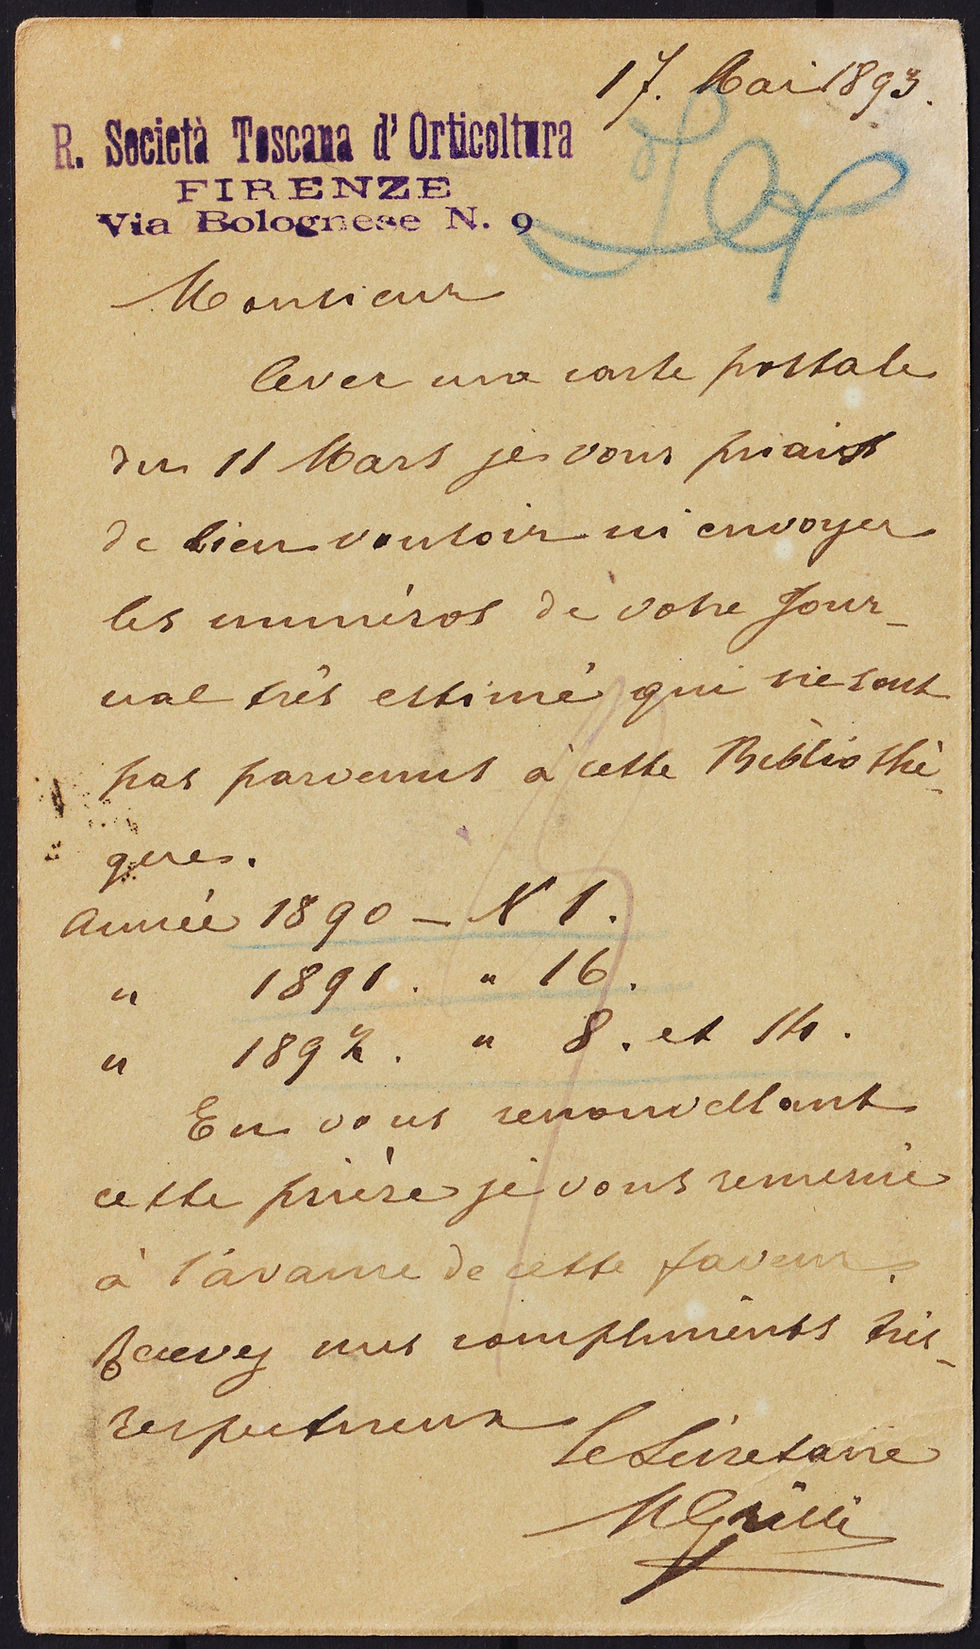 17. Mai 1893.
R. Società Toscana d' Orticoltura
FIRENZE
Via Bolognese N. 9
Monsieur
Avec una carte postale
du 11 Mars je vous priais
de bien vouloir m'envoyer
les numéros de votre Jour-
nal très estimé qui ne sont
pas parvenus à cette Bibliothè-
ques.
Année 1890 — N 1.
" 1891. " 16.
" 1892. " 8. et 14.
En vous renouvellant
cette prière je vous remercie
à l'avance de cette faveur.
Recevez mes compliments très-
respectueux
Le Sécretaire